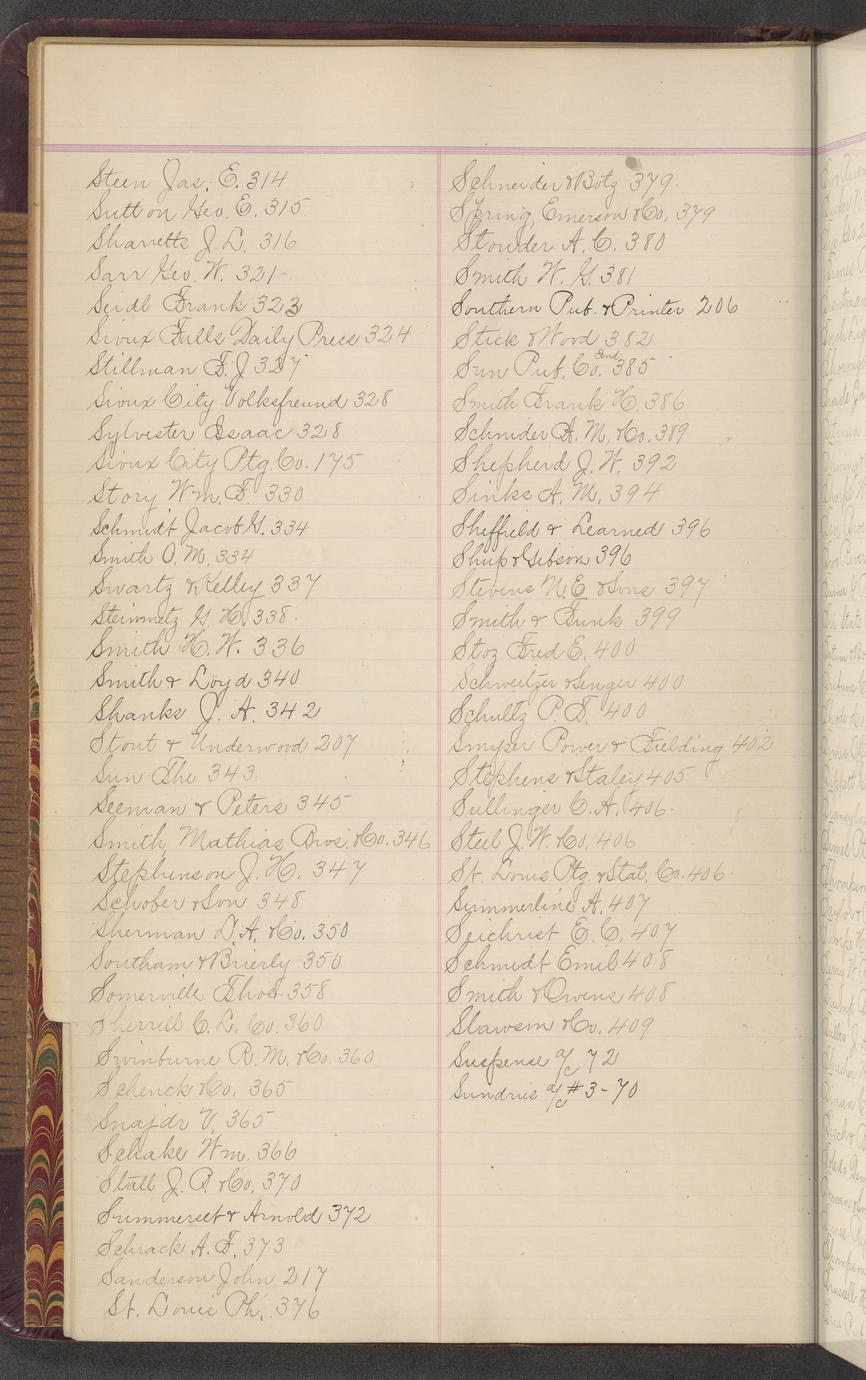 Steen Jas. E. 314
Sutton Geo. E. 315
Sharretts J. L. 316
Sarr Geo. W. 321
Seidl Frank 323
Sioux Falls Daily Press 324
Stillman F. J 327
Sioux City Volksfreund 328
Sylvester Isaac 328
Sioux City Ptg. Co. 175
Story Wm. F. 330
Schmidt Jacob G. 334
Smith O. M. 334
Swartz & Kelley 337
Steinmetz G. H. 338
Smith H. W. 336
Smith & Loyd 340
Shanks J. A. 342
Stout & Underwood 207
Sun The 343
Seeman & Peters 345
Smith, Mathias Bros. & Co. 346
Stephenson J. H. 347
Schober & Son 348
Sherman L. A. & Co. 350
Southam & Brierly 350
Somerville Thos. 358
Sherrill C. L. Co. 360
Swinburne R. M. & Co. 360
Schenck & Co. 365
Snajdr V. 365
Schake Wm. 366
Stall J. P. & Co. 370
Summerset & Arnold 372
Schrack A. F. 373
Sanderson John 217
St. Louis Ph. 376
Schneider & Botz 379
Spring, Emerson & Co. 379
Stowder A. C. 380
Smith W. G. 381
Southern Pub. & Printer 206
Stick & Wood 382
Sun Pub. Co. 385
Smith Frank H. 386
Schnider A. M. & Co. 389
Shepherd J. W. 392
Sinks A. M. 394
Sheffield & Learned 396
Shup & Gibson 396
Stevens N. E. & Sons 397
Smith & Funk 399
Stoz Fred E. 400
Schweitzer & Senger 400
Schultz P. F. 400
Smyser Power & Fielding 402
Stephens & Staley 405
Sullinger C. A. 406
Steel J. W. & Co. 406
St. Louis Ptg. & Stat. Co. 406
Summerline A. 407
Seichrist E. C. 407
Schmidt Emil 408
Smith & Owens 408
Slawson & Co. 409
Suspense a/c 72
Sundries a/c #3-70